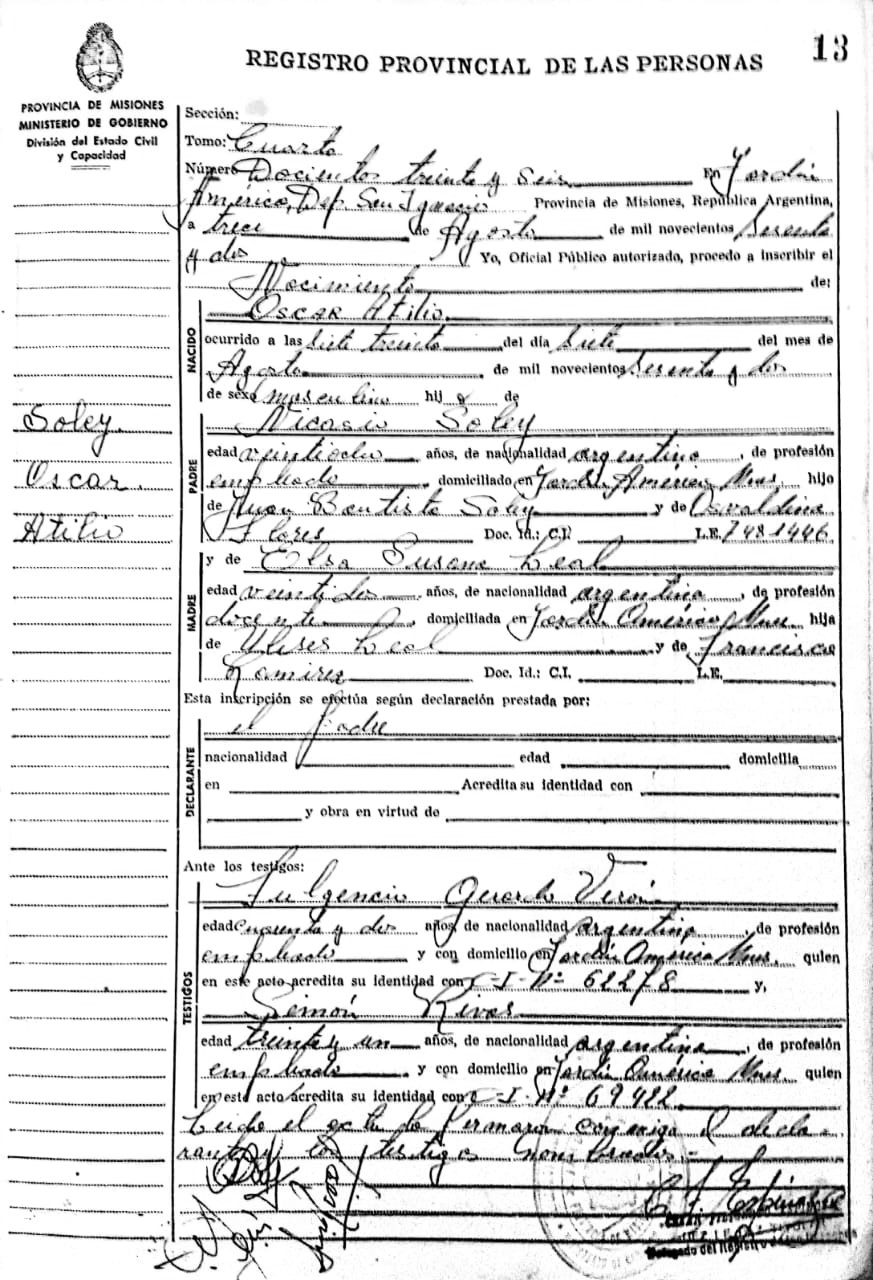 13
REGISTRO PROVINCIAL DE LAS PERSONAS
PROVINCIA DE MISIONES
MINISTERIO DE GOBIERNO
División del Estado Civil
y Capacidad
Sección:
Tomo: Cuarto
Número Docientos treinta y seis En Jardín
América, Dep. San Ignacio Provincia de Misiones, República Argentina,
a trece de Agosto de mil novecientos setenta
y dos Yo, Oficial Público autorizado, procedo a inscribir el
Nacimiento de:
NACIDO
Oscar Atilio
ocurrido a las siete treinta del día siete del mes de
Agosto de mil novecientos setenta y dos
de sexo masculino hijo de
Soley
Oscar.
Atilio
PADRE
Nicasio Soley
edad veintiocho años, de nacionalidad argentina, de profesión
empleado, domiciliado en Jardín América Mnes. hijo
de Juan Bautista Soley y de Osvaldina
Flores Doc. Id.: C.I. L.E. 7481446
MADRE
y de Elsa Susana Leal
edad veintidos años, de nacionalidad argentina, de profesión
docente, domiciliada en Jardín América Mnes. hija
de Ulises Leal y de Francisca
Ramirez Doc. Id.: C.I. L.E.
Esta inscripción se efectúa según declaración prestada por:
DECLARANTE
el padre
nacionalidad edad domicilia
en Acredita su identidad con
y obra en virtud de
Ante los testigos:
TESTIGOS
Fulgencio Gerardo Verón
edad cuarenta y dos años, de nacionalidad argentina, de profesión
empleado y con domicilio en Jardín América Mnes. quien
en este acto acredita su identidad con C-I-Nº 62278 y,
Simón Rivas
edad treinta y un años, de nacionalidad argentina, de profesión
empleado y con domicilio en Jardín América Mnes quien
en este acto acredita su identidad con C-I-Nº 69422
Leida el acta la firmaron conmigo el decla-
rante y los testigos nombrados.-
Delegado del Registro